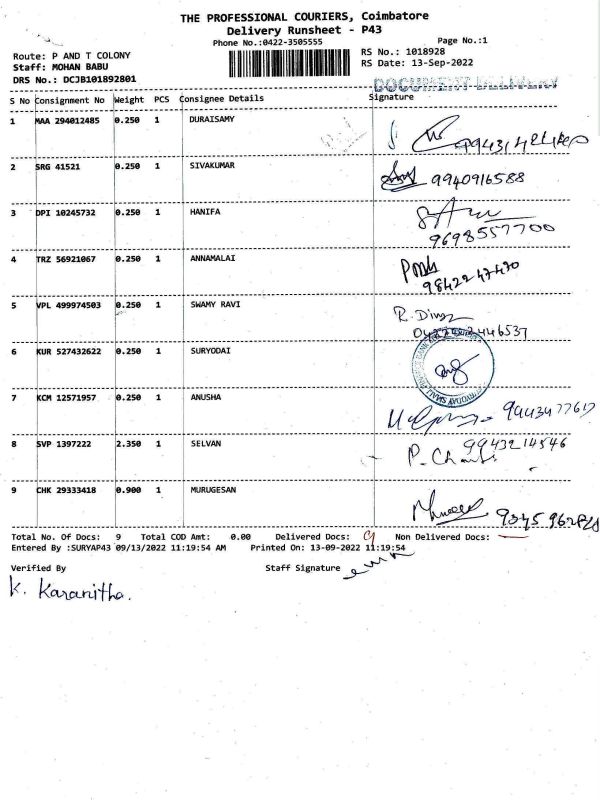 THE PROFESSIONAL COURIERS, Coimbatore
Delivery Runsheet - P43
Phone No.:0422-3505555
Page No.:1
Route: P AND T COLONY
RS No.: 1018928
Staff: MOHAN BABU
RS Date: 13-Sep-2022
DRS No.: DCJB101892801
DOCUMENT DELIVERY
S No Consignment No Weight PCS Consignee Details Signature
1 MAA 294012485 0.250 1 DURAISAMY
2 SRG 41521 0.250 1 SIVAKUMAR 9940916588
3 DPI 10245732 0.250 1 HANIFA
9698557700
4 TRZ 56921067 0.250 1 ANNAMALAI
5 VPL 499974503 0.250 1 SWAMY RAVI
6 KUR 527432622 0.250 1 SURYODAI
7 KCM 12571957 0.250 1 ANUSHA
8 SVP 1397222 2.350 1 SELVAN 9943214546
9 CHK 29333418 0.900 1 MURUGESAN
Total No. Of Docs: 9 Total COD Amt: 0.00 Delivered Docs: 9 Non Delivered Docs: —
Entered By :SURYAP43 09/13/2022 11:19:54 AM Printed On: 13-09-2022 11:19:54
Verified By Staff Signature
K. Karanitha.